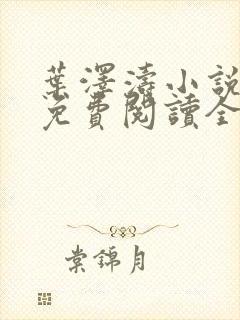 葉澤濤小說
免費閱讀全
棠錦月